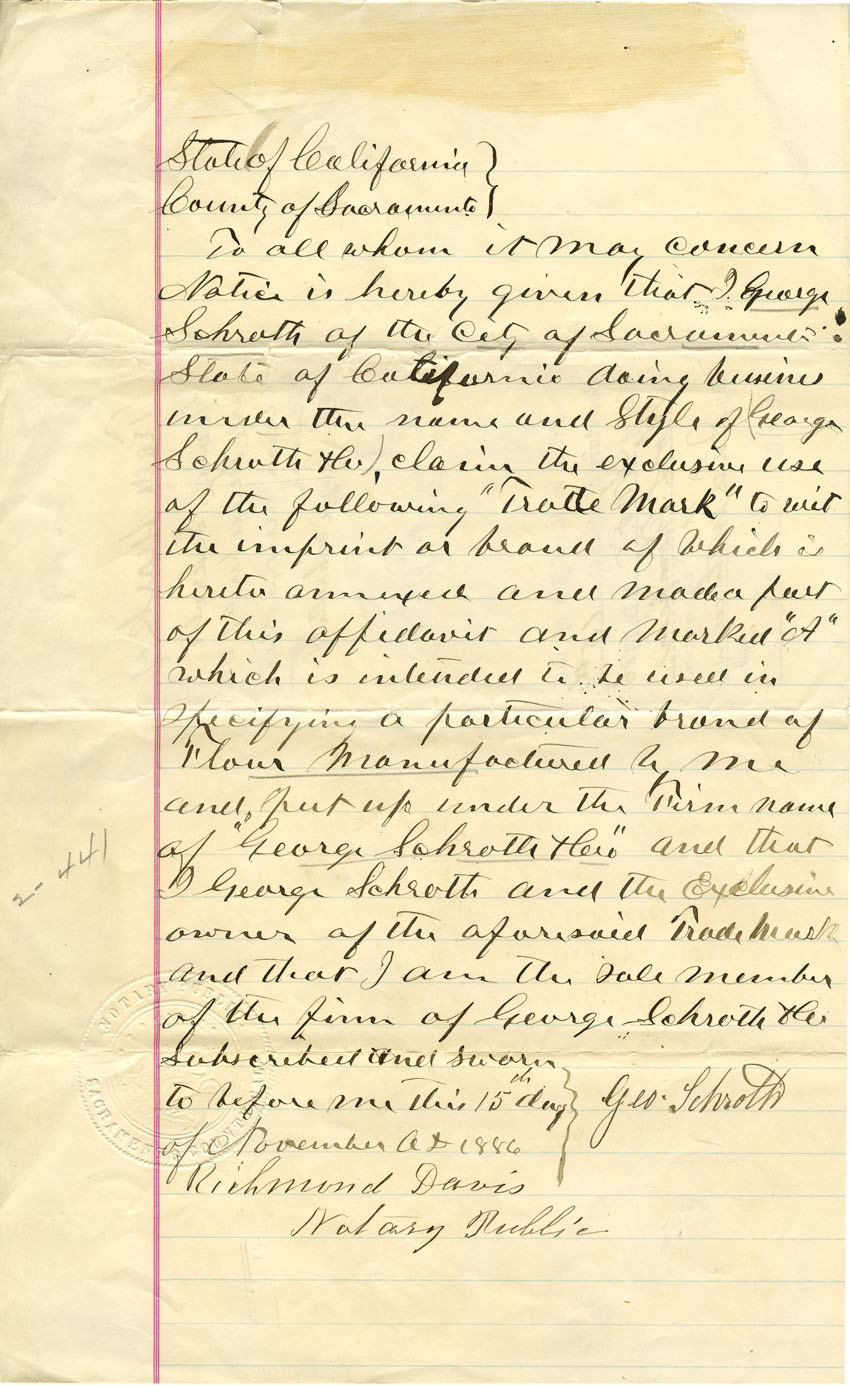 State of California }
County of Sacramento }
To all whom it may concern
Notice is hereby given that I George
Schroth of the City of Sacramento
State of California doing business
under the name and Style of (George
Schroth & Co), claim the exclusive use
of the following "Trade Mark" to wit
the imprint or brand of which is
hereto annexed and made a part
of this affidavit and marked "A"
which is intended to be used in
specifying a particular brand of
Flour Manufactured by me
and, put up under the Firm name
of "George Schroth & Co" and that
I George Schroth and the Exclusive
owner of the aforesaid Trade Mark
and that I am the sole member
of the firm of George Schroth & Co
Subscribed and sworn
to before me this 15th day } Geo. Schroth
of November AD 1886
Richmond Davis
Notary Public
2-441
NOTARY PUBLIC
SACRAMENTO COUNTY